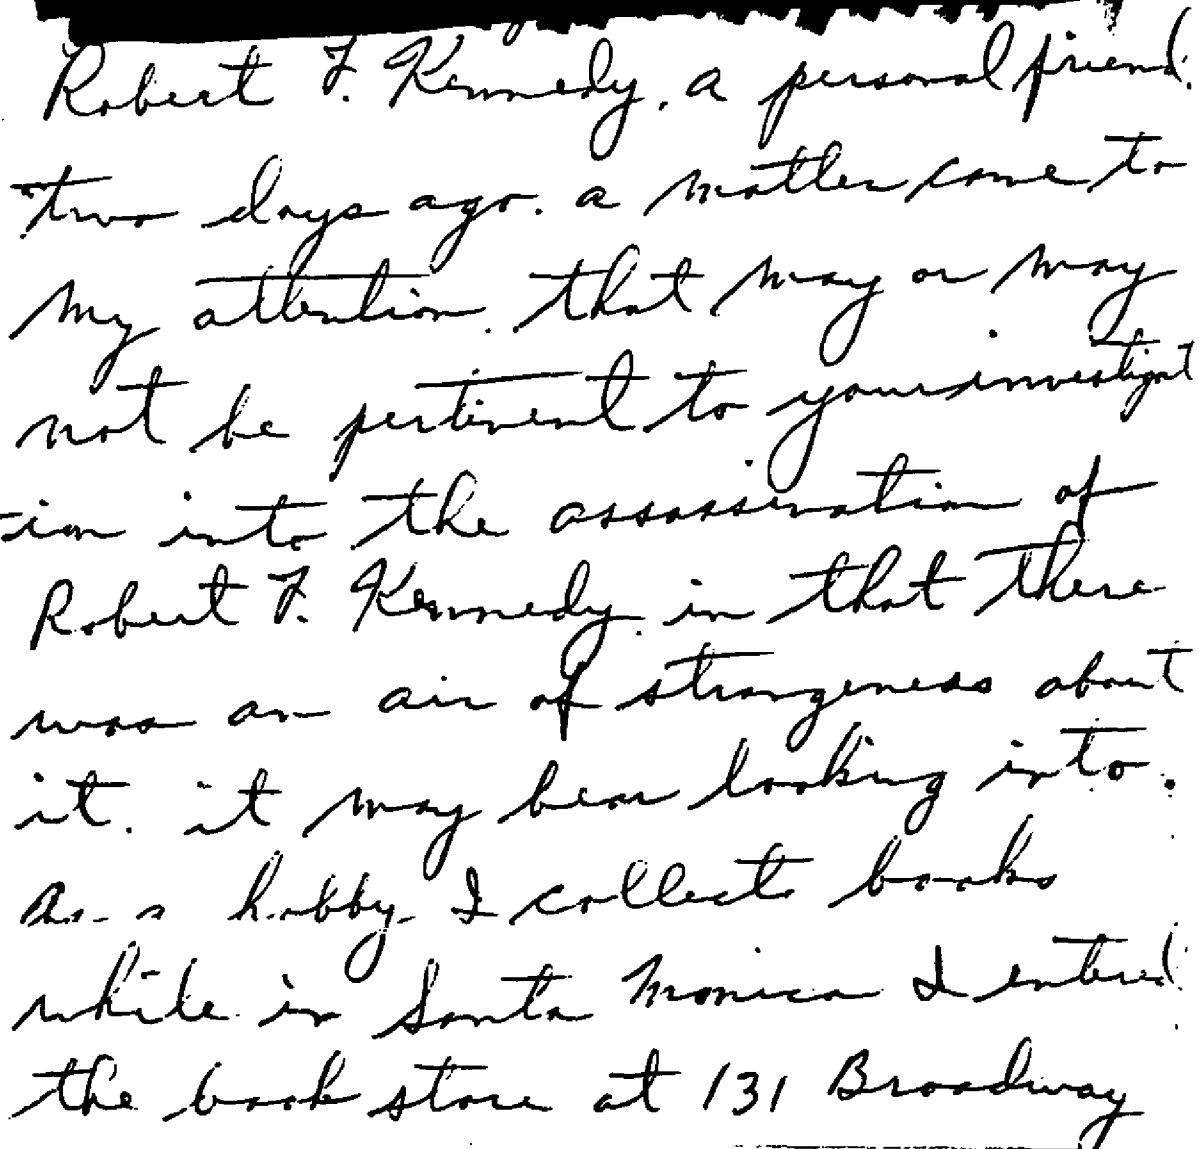 Robert F. Kennedy, a personal friend.
two days ago. a matter came to
my attention. that may or may
not be pertinent to your investigat
ion into the assassination of
Robert F. Kennedy. in that there
was an air of strangeness about
it. it may bear looking into.
As a hobby I collect books
while in Santa Monica I entered
the book store at 131 Broadway